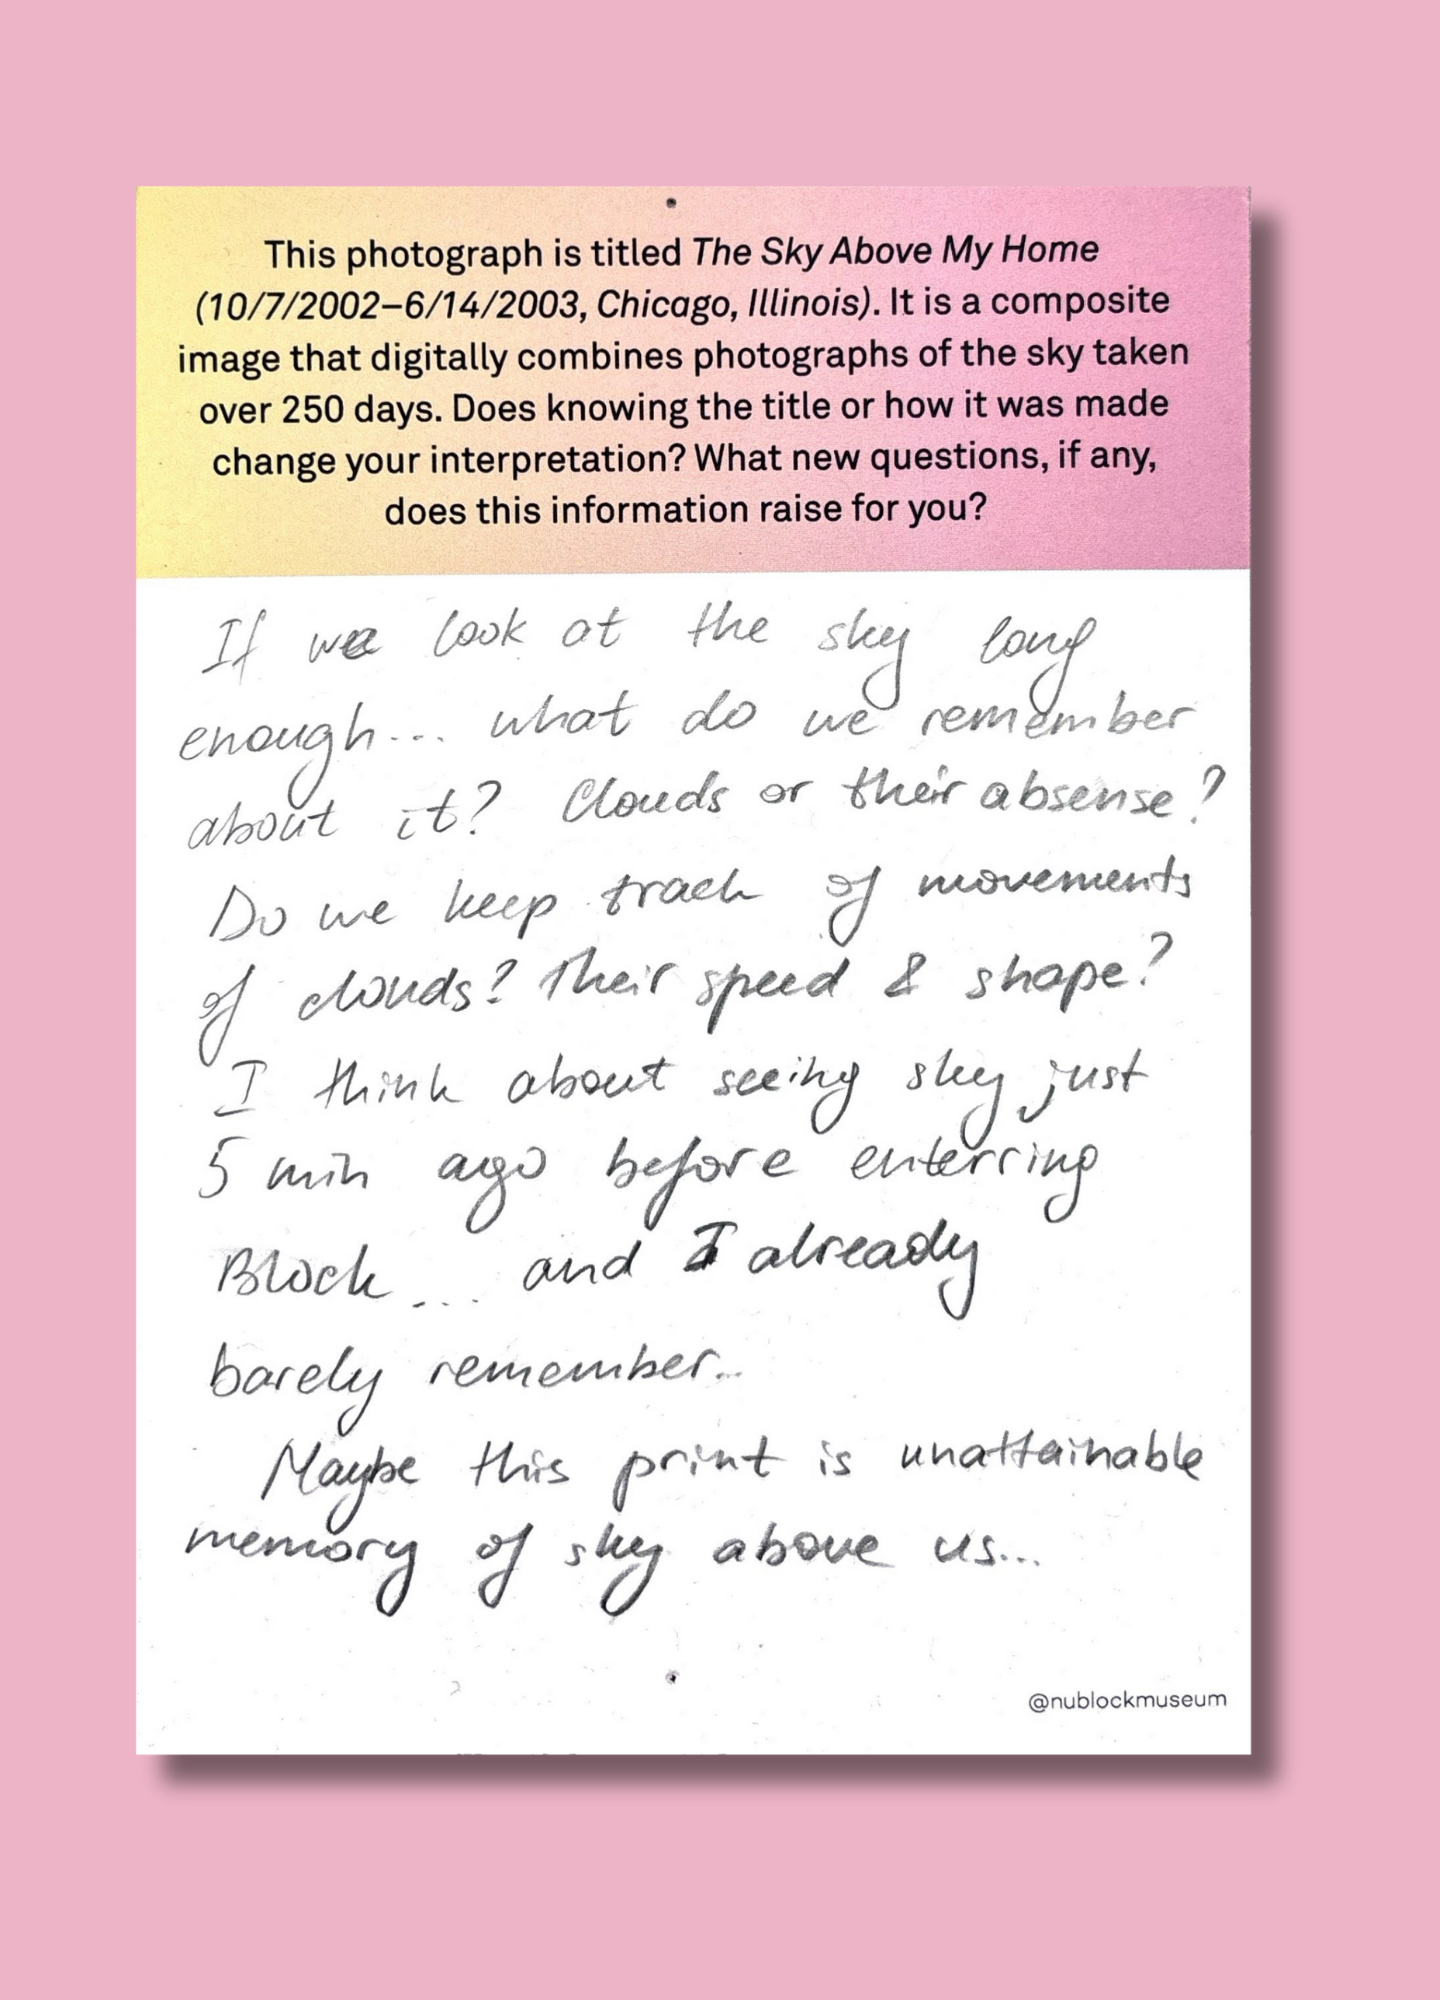 This photograph is titled The Sky Above My Home
(10/7/2002–6/14/2003, Chicago, Illinois). It is a composite
image that digitally combines photographs of the sky taken
over 250 days. Does knowing the title or how it was made
change your interpretation? What new questions, if any,
does this information raise for you?
If we look at the sky long
enough... what do we remember
about it? Clouds or their absense?
Do we keep track of movements
of clouds? Their speed & shape?
I think about seeing sky just
5 min ago before enterring
Block... and I already
barely remember...
Maybe this print is unattainable
memory of sky above us...
@nublockmuseum